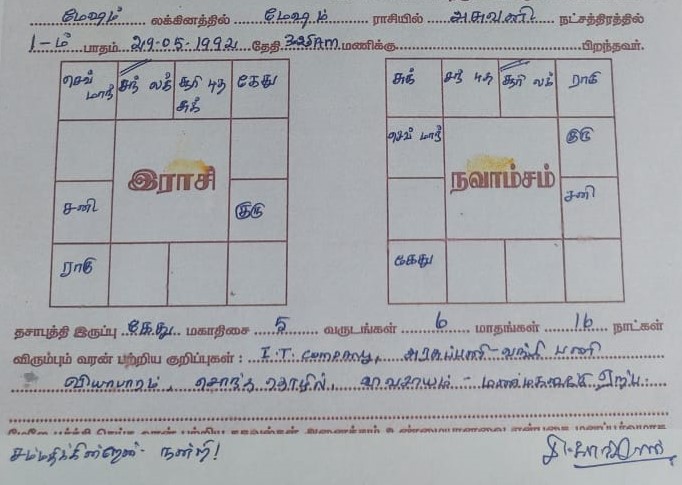 மேஷம் லக்கினத்தில் மேஷம் ராசியில் அசுவனி நட்சத்திரத்தில்
1-ம் பாதம் 29-05-1992 தேதி 3:25AM மணிக்கு பிறந்தவர்.
செவ் மாந் சந் லக் சூரி புத சுக் கேது
சனி இராசி குரு
ராகு
சுக் சந் புத சூரி லக் ராகு
செவ் மாந் நவாம்சம் குரு
சனி
கேது
தசாபுத்தி இருப்பு கேது மகாதிசை 5 வருடங்கள் 6 மாதங்கள் 16 நாட்கள்
விரும்பும் வரன் பற்றிய குறிப்புகள் : I.T. company, அரசுப்பணி - வங்கி பணி
வியாபாரம், சொந்த தொழில், விவசாயம் - மணமகனுக்கு
சம்மதிக்கின்றேன் - நன்றி!